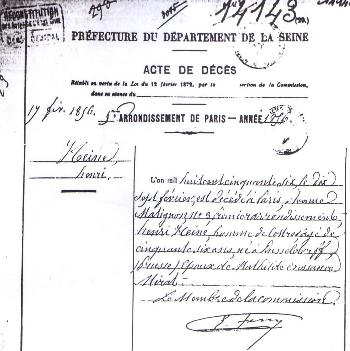 RECONSTITUTION
14143
PRÉFECTURE DU DÉPARTEMENT DE LA SEINE
ACTE DE DÉCÈS
Rétabli en vertu de la Loi du 12 février 1872, par la section de la Commission,
dans sa séance du
17 fév. 1856. 1er ARRONDISSEMENT DE PARIS — ANNÉE 1856
Heine,
henri
L'an mil huit cent cinquante six, le dix
sept février, est décédé à Paris, avenue
Matignon no 3, premier arrondissement,
henri Heine, homme de lettres, âgé de
cinquante six ans, né à Dusseldorff
(Prusse) Epoux de Mathilde
Mirat
Le Membre de la commission